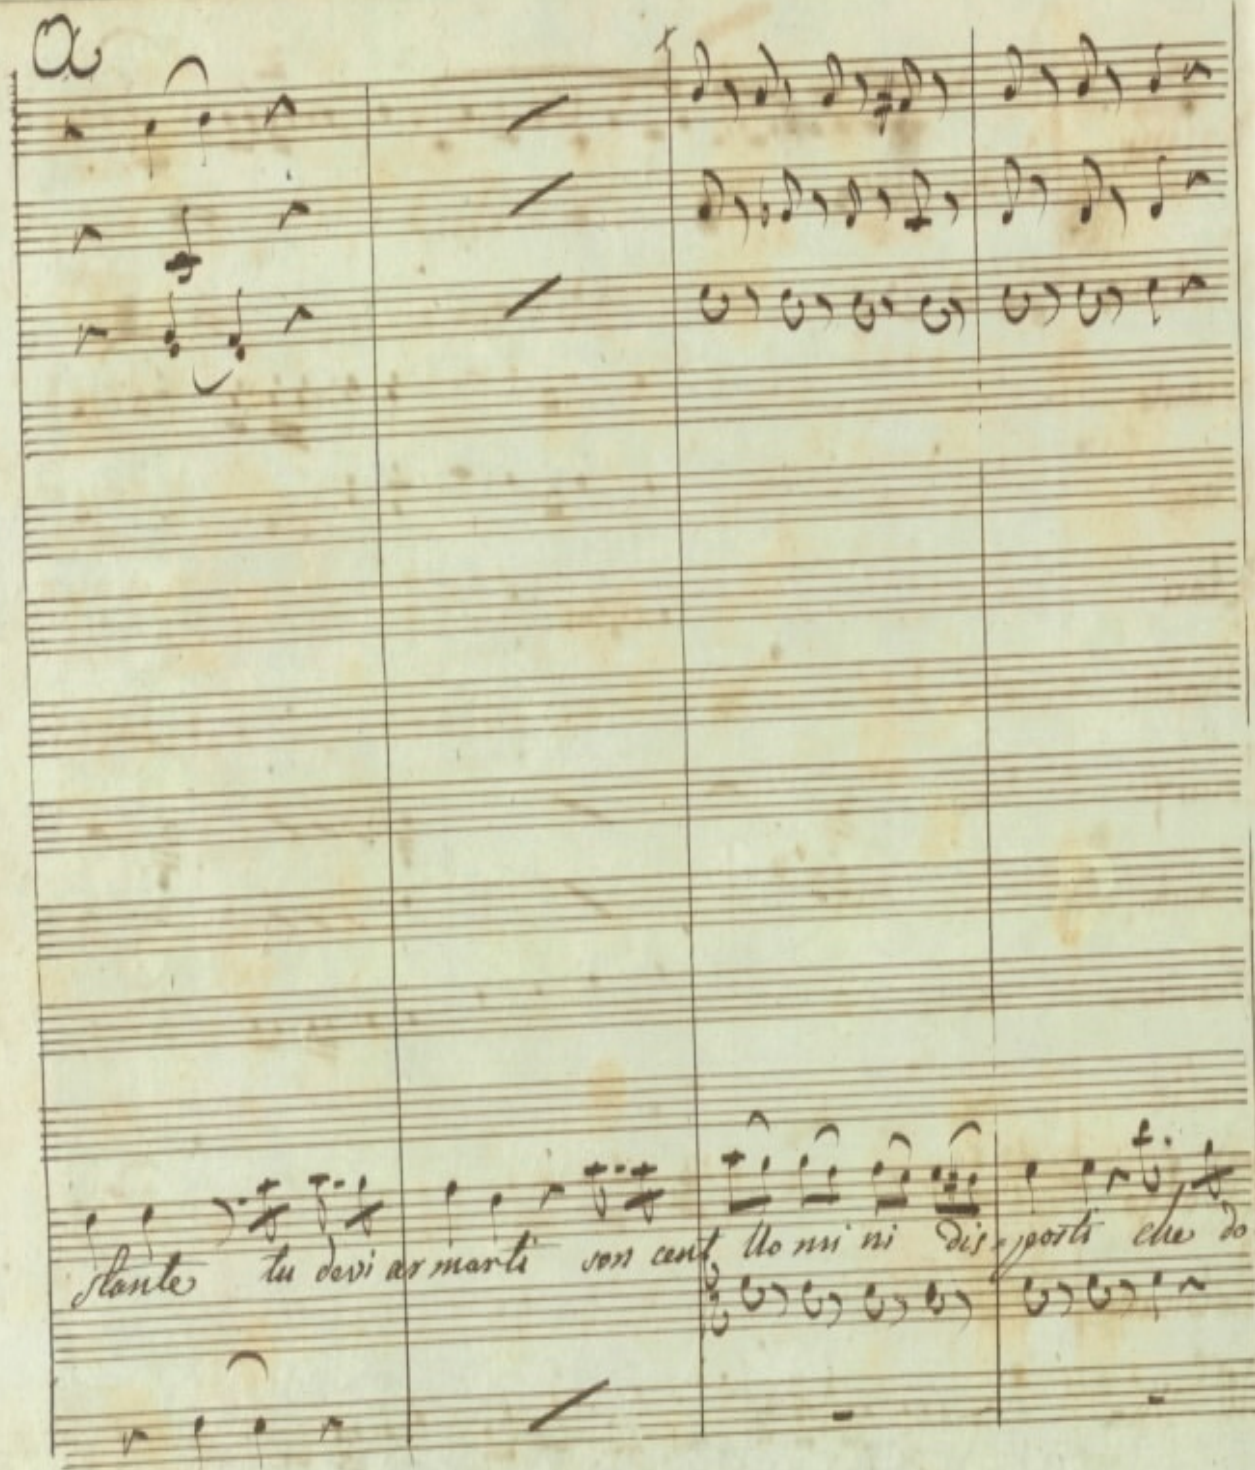 a
stante tu devi armarti son cent Uo mi ni dis=posti che do